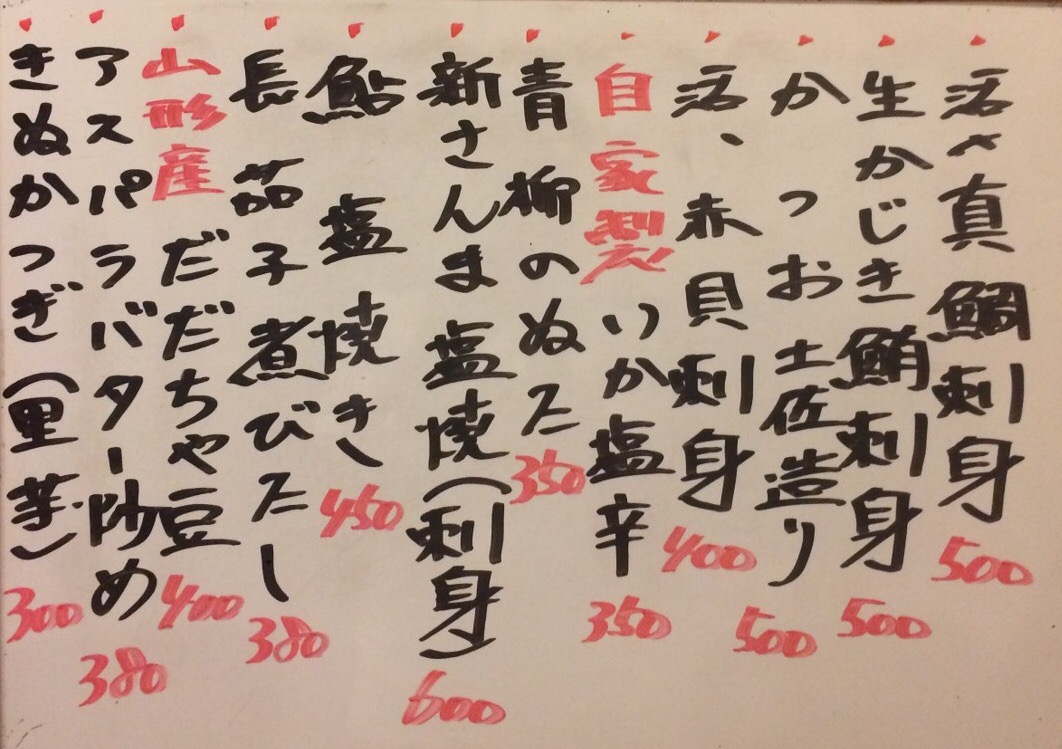 活〆真鯛刺身 500
生かじき鮪刺身 500
かつお土佐造り 500
活、赤貝刺身 400
自家製 いか塩辛 350
青柳のぬた 350
新さんま塩焼(刺身) 600
鮎 塩焼き 450
長茄子煮びたし 380
山形産 だだちゃ豆 400
アスパラバター炒め 380
きぬかつぎ(里芋) 300